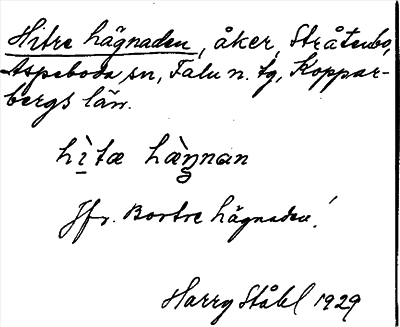 Hitre hägnaden, åker, Stråtenbo,
Aspeboda sn, Falu n. tg, Koppar-
bergs län.
hìtæ hæ̀ŋnan
Jfr. Bortre hägnaden!
Harry Ståhl 1929